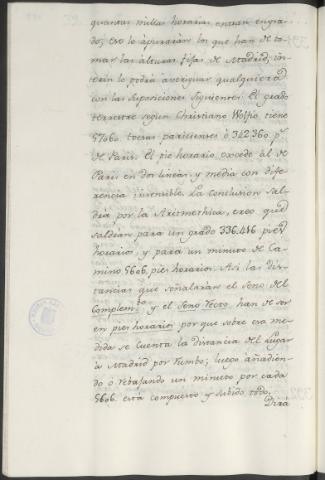 quantas millas horarias entran en gra-
dos; eso lo apurarán los que han de to-
mar las alturas fijas de Madrid; in-
terin lo podrá averiguar qualquiera
con las suposiciones siguientes: El grado
terrestre segun Christiano Wolfio tiene
57060. toesas parisienses ò 342.360 p.s
de Paris. El pie horario excede àl de
Paris en dos lineas, y media con dife-
rencia insensible. La conclusion sal-
drà por la Arismethica, creo que
saldràn para un grado 336.416 pies
horarios, y para un minuto de Ca-
mino 5606. pies horarios. Asi las dis-
tancias que señalaran el seno del
Complem.to y el Seno Recto han de ser
en pies horarios, por que sobre esa me-
dida se cuenta la distancia del Lugar
à Madrid por Rumbo; luego añadien-
do ò rebajando un minuto por cada
5606. està compuesto y subido todo.
Dirà